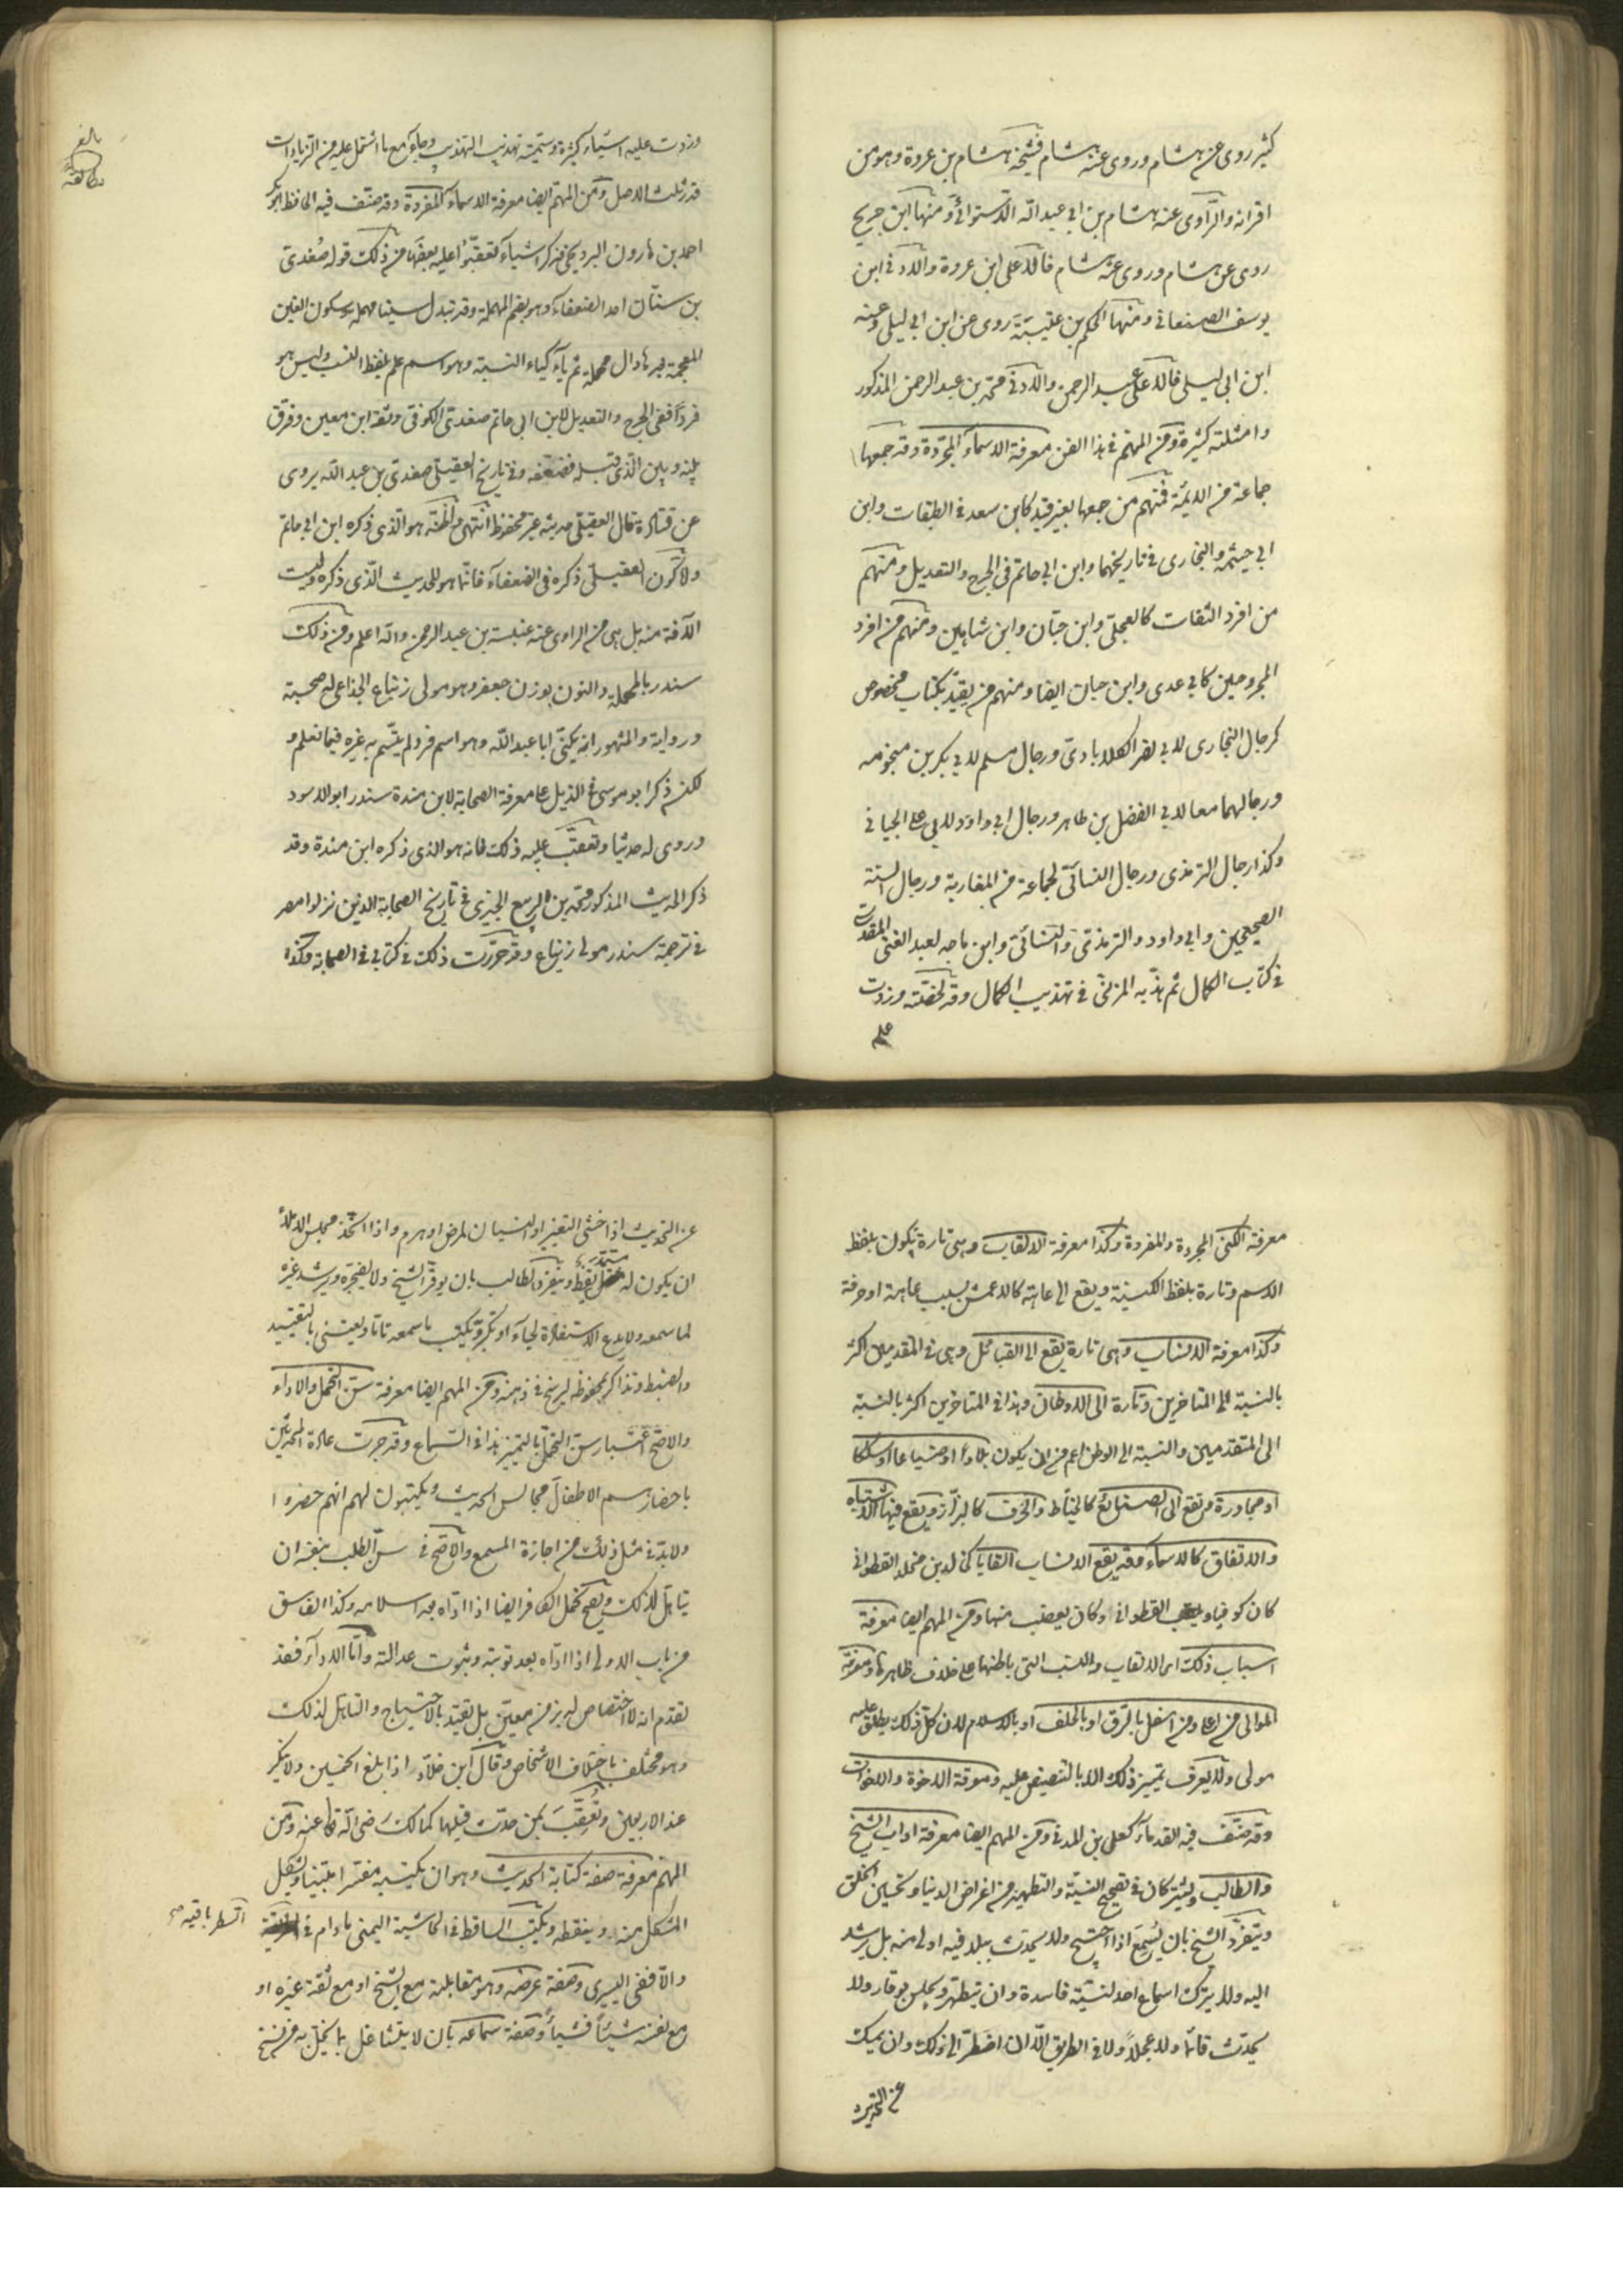 كثير روى عن هشام وروى عنه هشام فشيخه هشام بن عروة وهو من
اقرانه والراوى عنه هشام بن ابى عبد الله الدستوائى ومنها ابن جريج
روى عن هشام وروى عنه هشام فالاعلى ابن عروة والادنى ابن
يوسف الصنعانى ومنها الحكم بن عتيبة روى عن ابن ابى ليلى وعنه
ابن ابى ليلى فالاعلى عبد الرحمن والادنى محمد بن عبد الرحمن المذكور
وامثلته كثيرة ومن المهم فى هذا الفن معرفة الاسماء المجردة وقد جمعها
جماعة من الائمة فمنهم من جمعها بغير قيد كابن سعد فى الطبقات وابن
ابى خيثمة والبخارى فى تاريخهما وابن ابى حاتم فى الجرح والتعديل ومنهم
من افرد الثقات كالعجلى وابن حبان وابن شاهين ومنهم من افرد
المجروحين كابى عدى وابن حبان ايضا ومنهم من يقيد بكتاب مخصوص
كرجال البخارى لابى نصر الكلاباذى ورجال مسلم لابى بكر بن منجويه
ورجالهما معا لابى الفضل بن طاهر ورجال ابى داود لابى على الجيانى
وكذا رجال الترمذى ورجال النسائى لجماعة من المغاربة ورجال الستة
الصحيحين وابى داود والترمذى والنسائى وابن ماجه لعبد الغنى المقدسى
فى كتاب الكمال ثم هذبه المزى فى تهذيب الكمال وقد لخصته وزدت
عليه
وزدت عليه اشياء كثيرة وسميته تهذيب التهذيب وجاء مع ما اشتمل عليه من الزيادات
قدر ثلث الاصل ومن المهم ايضا معرفة الاسماء المفردة وقد صنف فيه الحافظ ابو بكر
احمد بن هارون البرديجى فذكر اشياء تعقبوا عليه بعضها من ذلك قوله صغدى
بن سنان احد الضعفاء وهو بضم المهملة وقد تبدل سينا مهملة وسكون الغين
المعجمة بعدها دال مهملة ثم ياء كياء النسبة وهو اسم علم بلفظ النسب وليس هو
فردا ففى الجرح والتعديل لابن ابى حاتم صغدى الكوفى وثقه ابن معين وفرق
بينه وبين الذى قبله فضعفه وفى تاريخ العقيلى صغدى بن عبد الله يروى
عن قتادة قال العقيلى حديثه غير محفوظ انتهى واظنه هو الذى ذكره ابن ابى حاتم
ولا كون العقيلى ذكره فى الضعفاء فانما هو للحديث الذى ذكره وليست
الآفة منه بل هى من الراوى عنه عنبسة بن عبد الرحمن والله اعلم ومن ذلك
سندر بالمهملة والنون بوزن جعفر وهو مولى زنباع الجذامى له صحبة
ورواية والمشهور انه يكنى ابا عبد الله وهو اسم فرد لم يتسم به غيره فيما نعلم و
لكن ذكر ابو موسى فى الذيل على معرفة الصحابة لابن مندة سندر ابو الاسود
وروى له حديثا وتعقب عليه ذلك فانه هو الذى ذكره ابن مندة وقد
ذكر الحديث المذكور محمد بن الربيع الجيزى فى تاريخ الصحابة الذين نزلوا مصر
فى ترجمة سندر مولى زنباع وقد حررت ذلك فى كتابى فى الصحابة وكذا
معرفة الكنى المجردة والمفردة وكذا معرفة الالقاب وهى تارة تكون بلفظ
الاسم وتارة بلفظ الكنية ويقع الى عاهة كالاعمش بسبب عاهة او حرفة
وكذا معرفة الانساب وهى تارة يقع الى القبائل وهى فى المقدمين اكثر
بالنسبة الى المتاخرين وتارة الى الاوطان وهذا فى المتاخرين اكثر بالنسبة
الى المتقدمين والنسبة الى الوطن اعم من ان يكون بلادا او ضياعا او سككا
او مجاورة وتقع الى الصنايع كالخياط والحرف كالبزاز ويقع فيها الاشتباه
والاتفاق كالاسماء وقد يقع الانساب القابا كخالد بن مخلد القطوانى
كان كوفيا ويلقب القطوانى وكان يغضب منها ومن المهم ايضا معرفة
اسباب ذلك اى الالقاب والنسب التى باطنها على خلاف ظاهرها ومعرفة
الموالى من اعلى ومن اسفل بالرق او بالحلف او بالاسلام لان كل ذلك يطلق عليه
مولى ولا يعرف تمييز ذلك الا بالتنصيص عليه ومعرفة الاخوة والاخوات
وقد صنف فيه القدماء كعلى بن المدنى ومن المهم ايضا معرفة اداب الشيخ
والطالب ويشتركان فى تصحيح النية والتطهير من اغراض الدنيا وتحسين الخلق
ويتفرد الشيخ بان يسمع اذا احتيج ولا يحدث ببلد فيه اولى منه بل يرشد
اليه ولا يترك اسماع احد لنية فاسدة وان يتطهر ويجلس بوقار ولا
يحدث قائما ولا عجلا ولا فى الطريق الا ان اضطر الى ذلك وان يمسك
عن التحديث
عن التحديث اذا خشى التغير او النسيان لمرض او هرم واذا اتخذ مجلس الاملاء
ان يكون له مستملى يقظ ويتفرد الطالب بان يوقر الشيخ ولا يضجره ويرشد غيره
لما سمعه ولا يدع الاستفادة لحياء او تكبر ويكتب ما سمعه تاما ويعتنى بالتقييد
والضبط ويذاكر بمحفوظه ليرسخ فى ذهنه ومن المهم ايضا معرفة سن التحمل والاداء
والاصح اعتبار سن التحمل بالتمييز هذا فى السماع وقد جرت عادة المحدثين
باحضارهم الاطفال مجالس الحديث ويكتبون لهم انهم حضروا
ولابد فى مثل ذلك من اجازة المسمع والاصح فى سن الطلب بنفسه ان
يتاهل لذلك ويصح تحمل الكافر ايضا اذا اداه بعد اسلامه وكذا الفاسق
من باب الاولى اذا اداه بعد توبته وثبوت عدالته واما الاداء فقد
تقدم انه لا اختصاص له بزمن معين بل يقيد بالاحتياج والتاهل لذلك
وهو مختلف باختلاف الاشخاص وقال ابن خلاد اذا بلغ الخمسين ولا ينكر
عند الاربعين وتعقب بمن حدث قبلها كمالك رضى الله تعالى عنه ومن
المهم معرفة صفة كتابة الحديث وهو ان يكتبه مفسرا مبينا ويشكل
المشكل منه وينقطه ويكتب الساقط فى الحاشية اليمنى مادام فى
السطر باقية صح
والا ففى اليسرى وصفة عرضه وهو مقابلته مع الشيخ او مع ثقة غيره او
مع نفسه شيئا فشيئا وصفة سماعه بان لا يتشاغل بما يخل به من نسخ